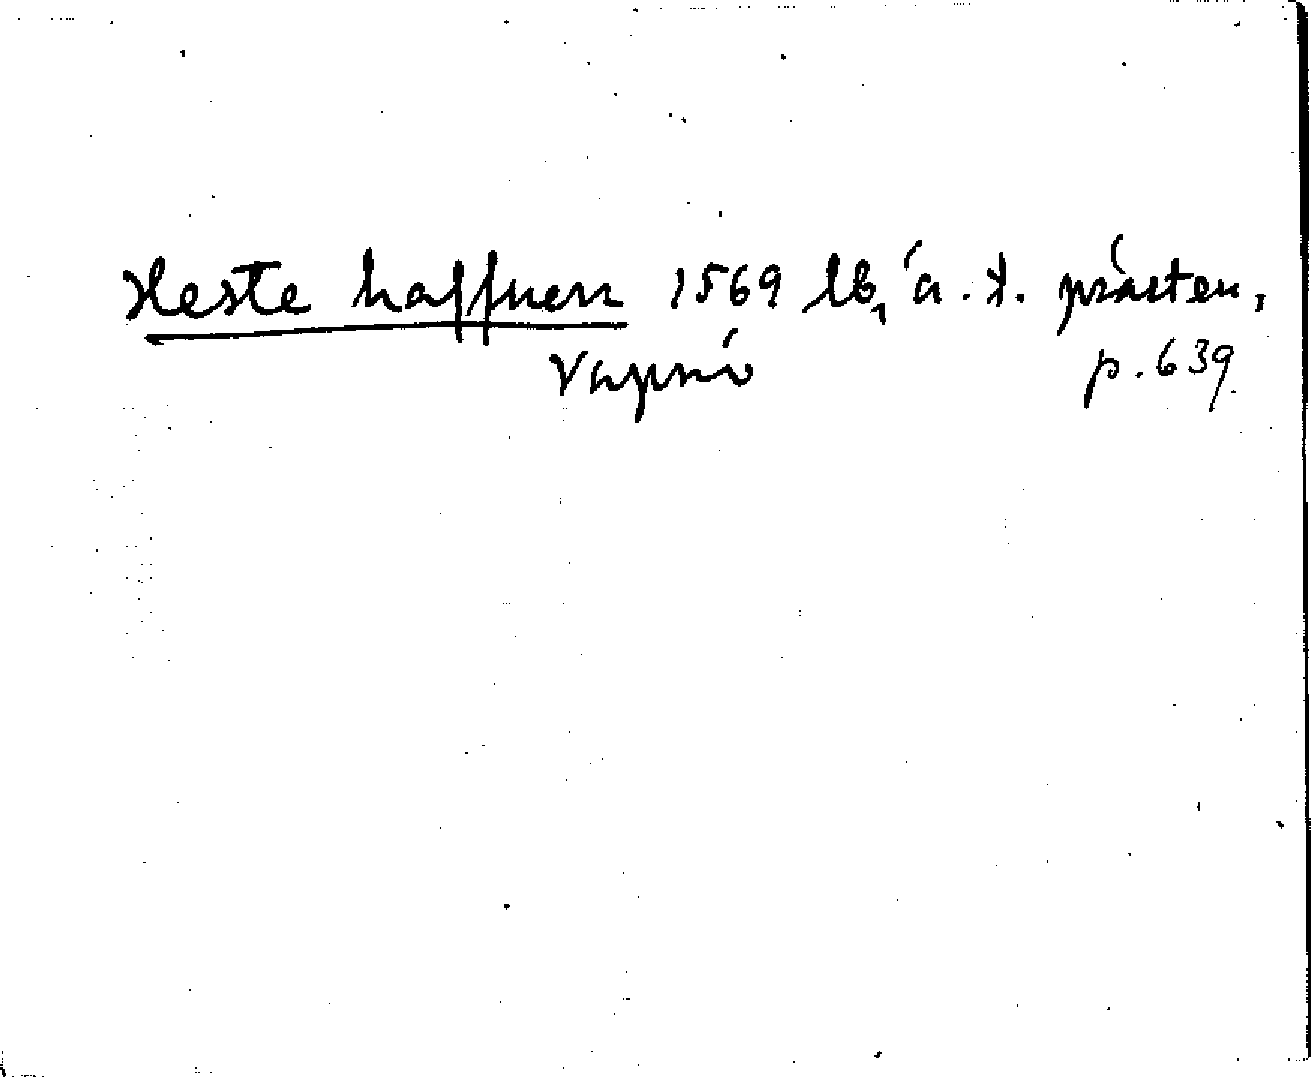 Heste haffnen 1569 lb, å. t. prästen,
Vapnö p. 639